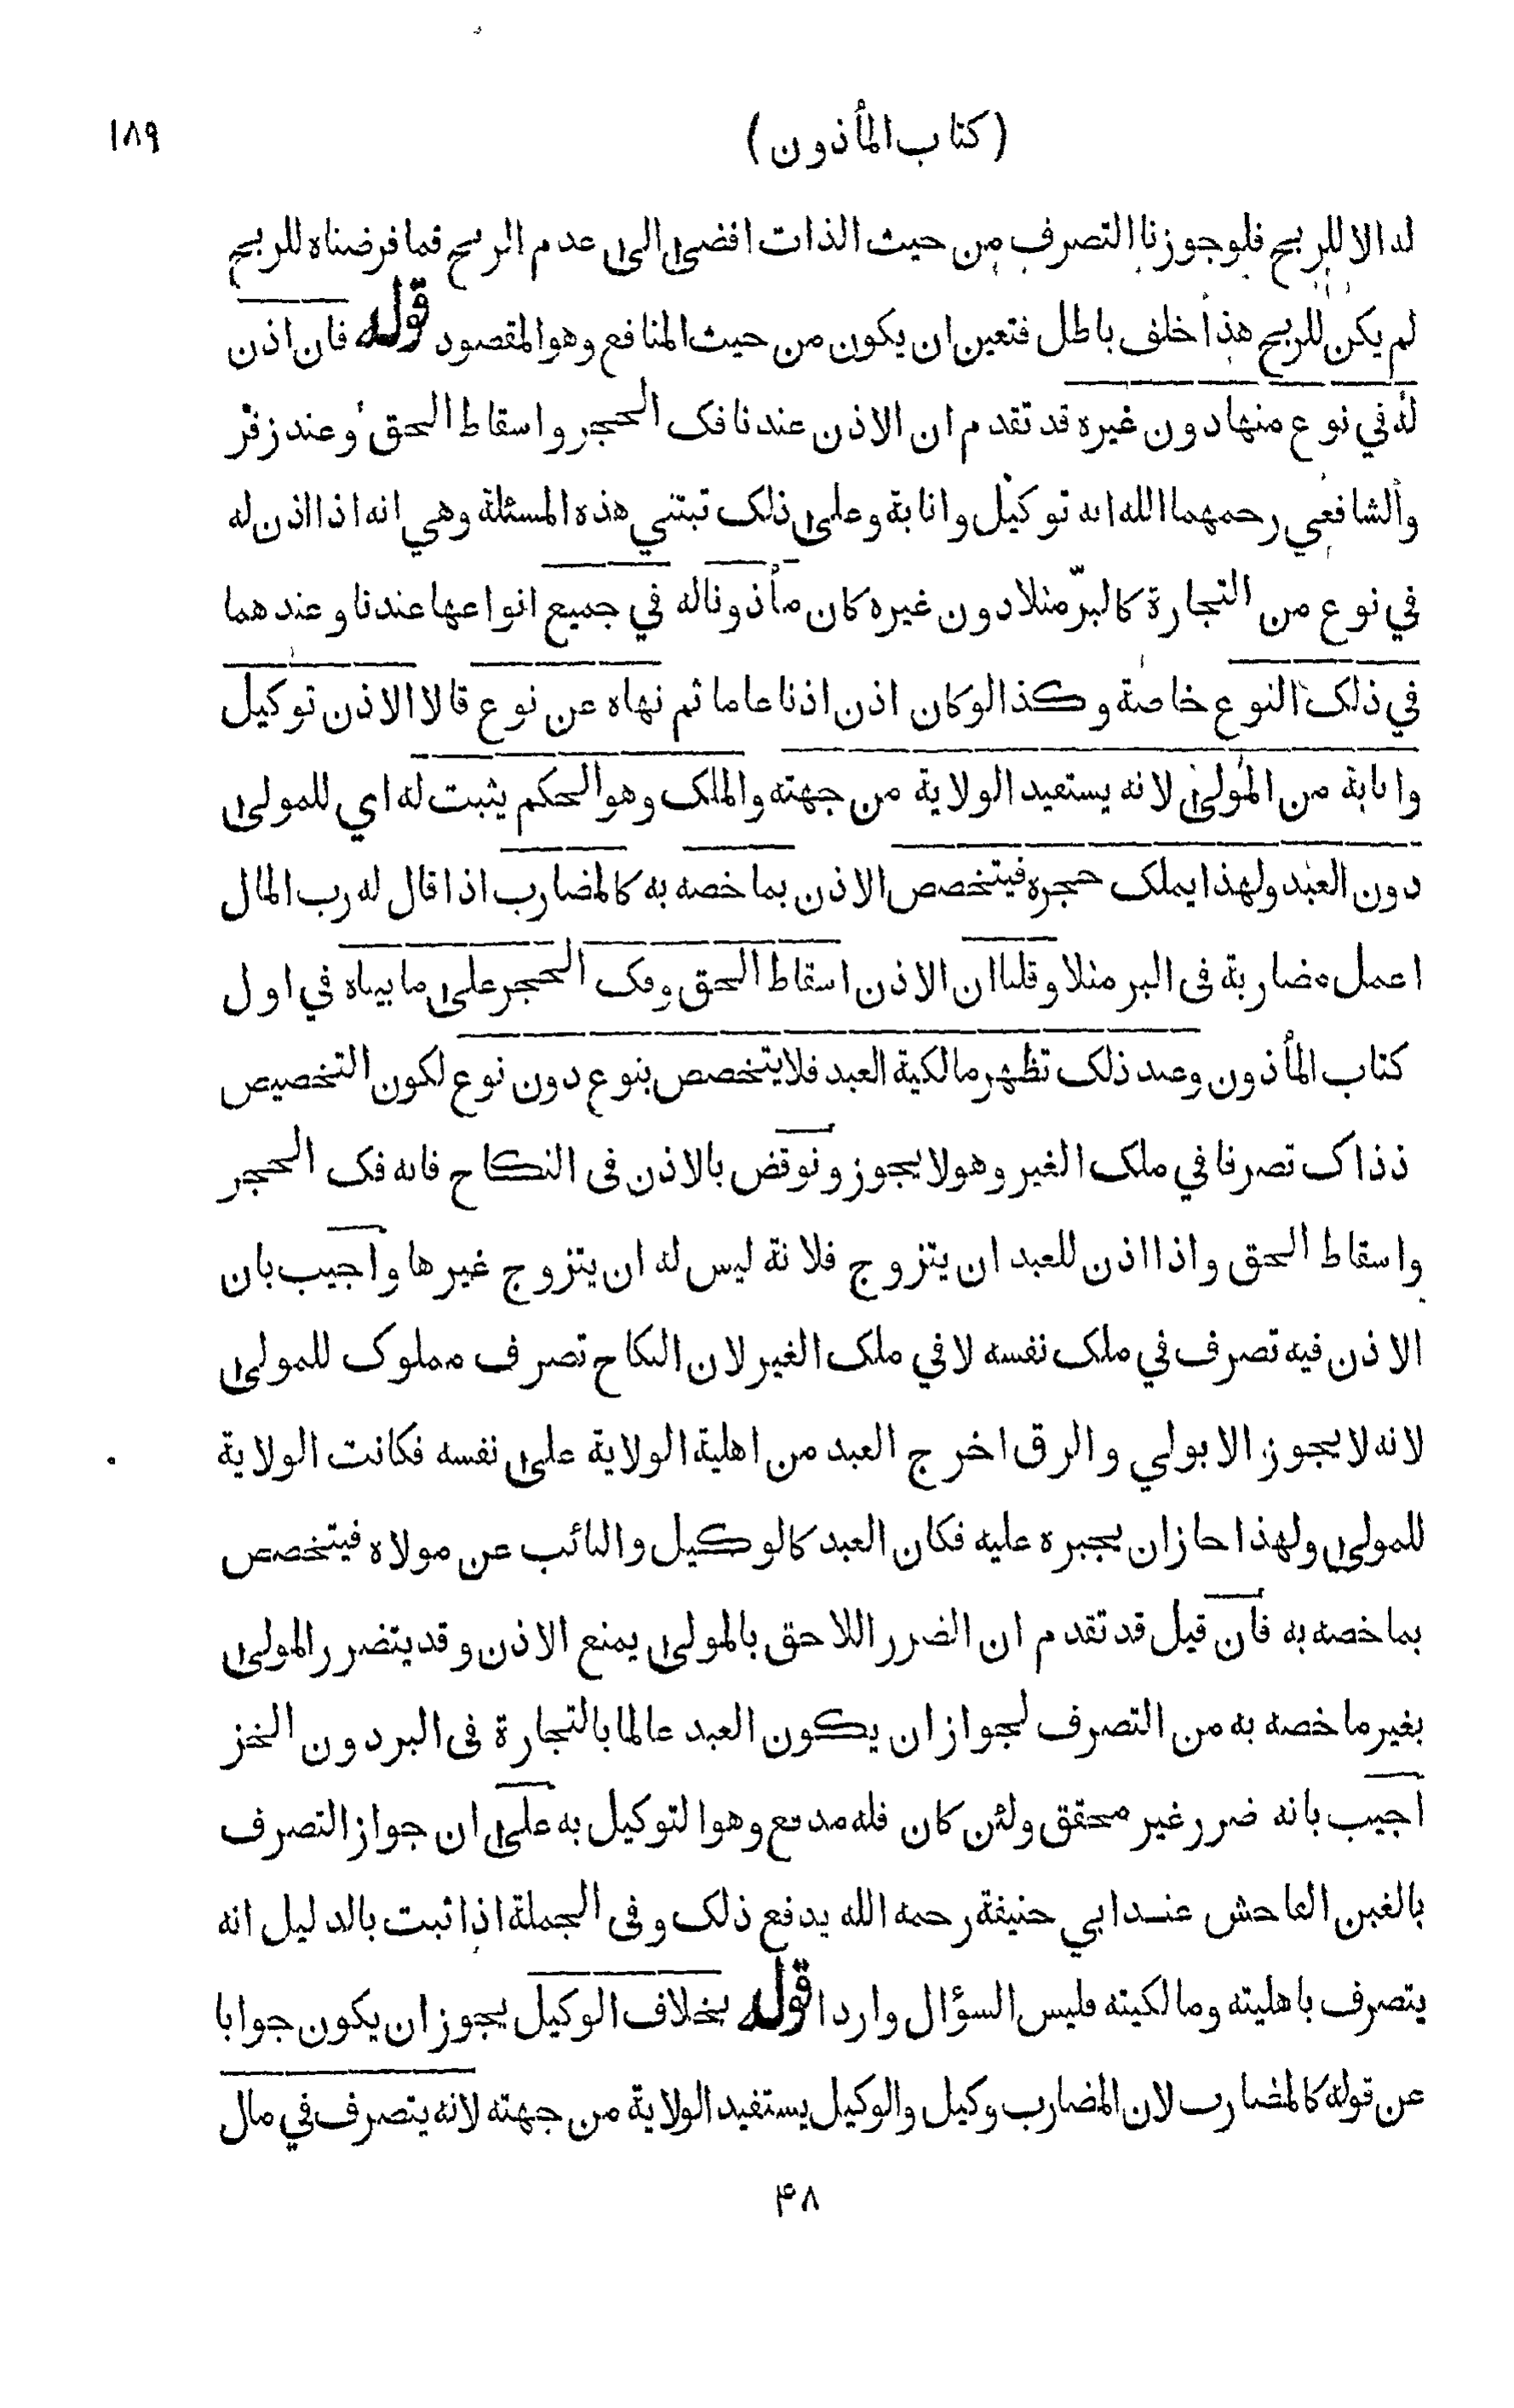 (كتاب المأذون)
١٨٩
له الا للربح فلوجوزنا التصرف من حيث الذات افضى الى عدم الربح فما فرضناه للربح
لم يكن للربح هذا خلف باطل فتعين ان يكون من حيث المنافع وهو المقصود قوله فان اذن
له في نوع منها دون غيره قد تقدم ان الاذن عندنا فك الحجر واسقاط الحق وعند زفر
والشافعي رحمهما الله انه توكيل وانابة وعلى ذلك تبتني هذه المسئلة وهي انه اذا اذن له
في نوع من التجارة كالبزّ مثلا دون غيره كان مأذونا له في جميع انواعها عندنا وعندهما
في ذلك النوع خاصة وكذا لو كان اذن اذنا عاما ثم نهاه عن نوع قالا الاذن توكيل
وانابة من المولى لانه يستعيد الولاية من جهته والملك وهو الحكم يثبت له اي للمولى
دون العبد ولهذا يملك حجره فيتخصص الاذن بما خصه به كالمضارب اذا قال له رب المال
اعمل مضاربة في البر مثلا وقلنا ان الاذن اسقاط الحق وفك الحجر على ما بيناه في اول
كتاب المأذون وعند ذلك تظهر مالكية العبد فلا يتخصص بنوع دون نوع لكون التخصيص
ذذاك تصرفا في ملك الغير وهو لا يجوز ونوقض بالاذن في النكاح فانه فك الحجر
واسقاط الحق واذا اذن للعبد ان يتزوج فلانة ليس له ان يتزوج غيرها واجيب بان
الاذن فيه تصرف في ملك نفسه لا في ملك الغير لان النكاح تصرف مملوك للمولى
لانه لا يجوز الا بولي والرق اخرج العبد من اهلية الولاية على نفسه فكانت الولاية
للمولى ولهذا جاز ان يجبره عليه فكان العبد كالوكيل والنائب عن مولاه فيتخصص
بما خصه به فان قيل قد تقدم ان الضرر اللاحق بالمولى يمنع الاذن وقد يتضرر المولى
بغير ما خصه به من التصرف لجواز ان يكون العبد عالما بالتجارة في البر دون الخز
اجيب بانه ضرر غير محقق ولئن كان فله مدفع وهو التوكيل به على ان جواز التصرف
بالغبن الفاحش عند ابي حنيفة رحمه الله يدفع ذلك وفي الجملة اذا ثبت بالدليل انه
يتصرف باهليته ومالكيته فليس السؤال واردا قوله بخلاف الوكيل يجوز ان يكون جوابا
عن قوله كالمضارب لان المضارب وكيل والوكيل يستفيد الولاية من جهته لانه يتصرف في مال
۴۸